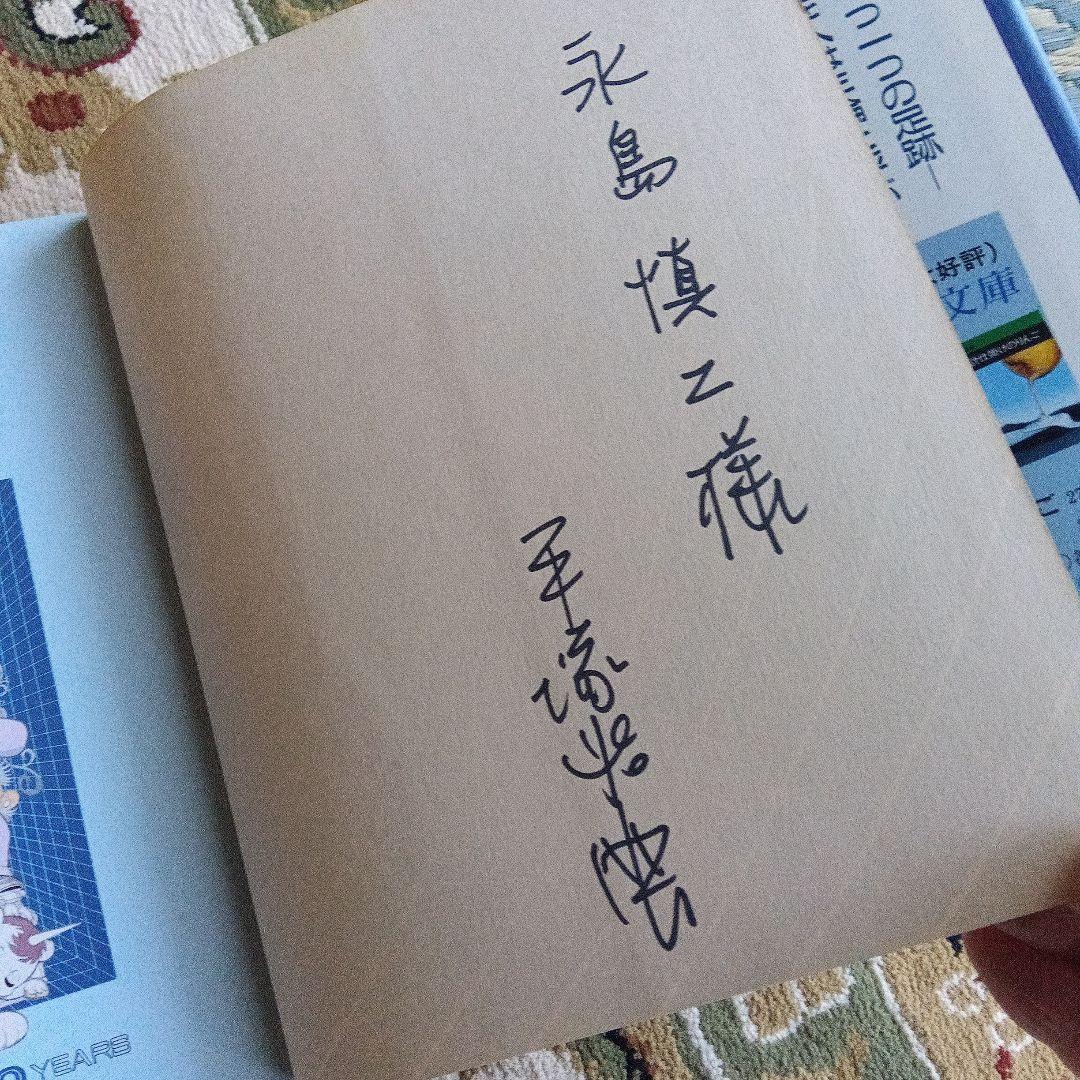 永島 慎二様
手塚治虫
の足跡―
大好評)
文庫
YEARS